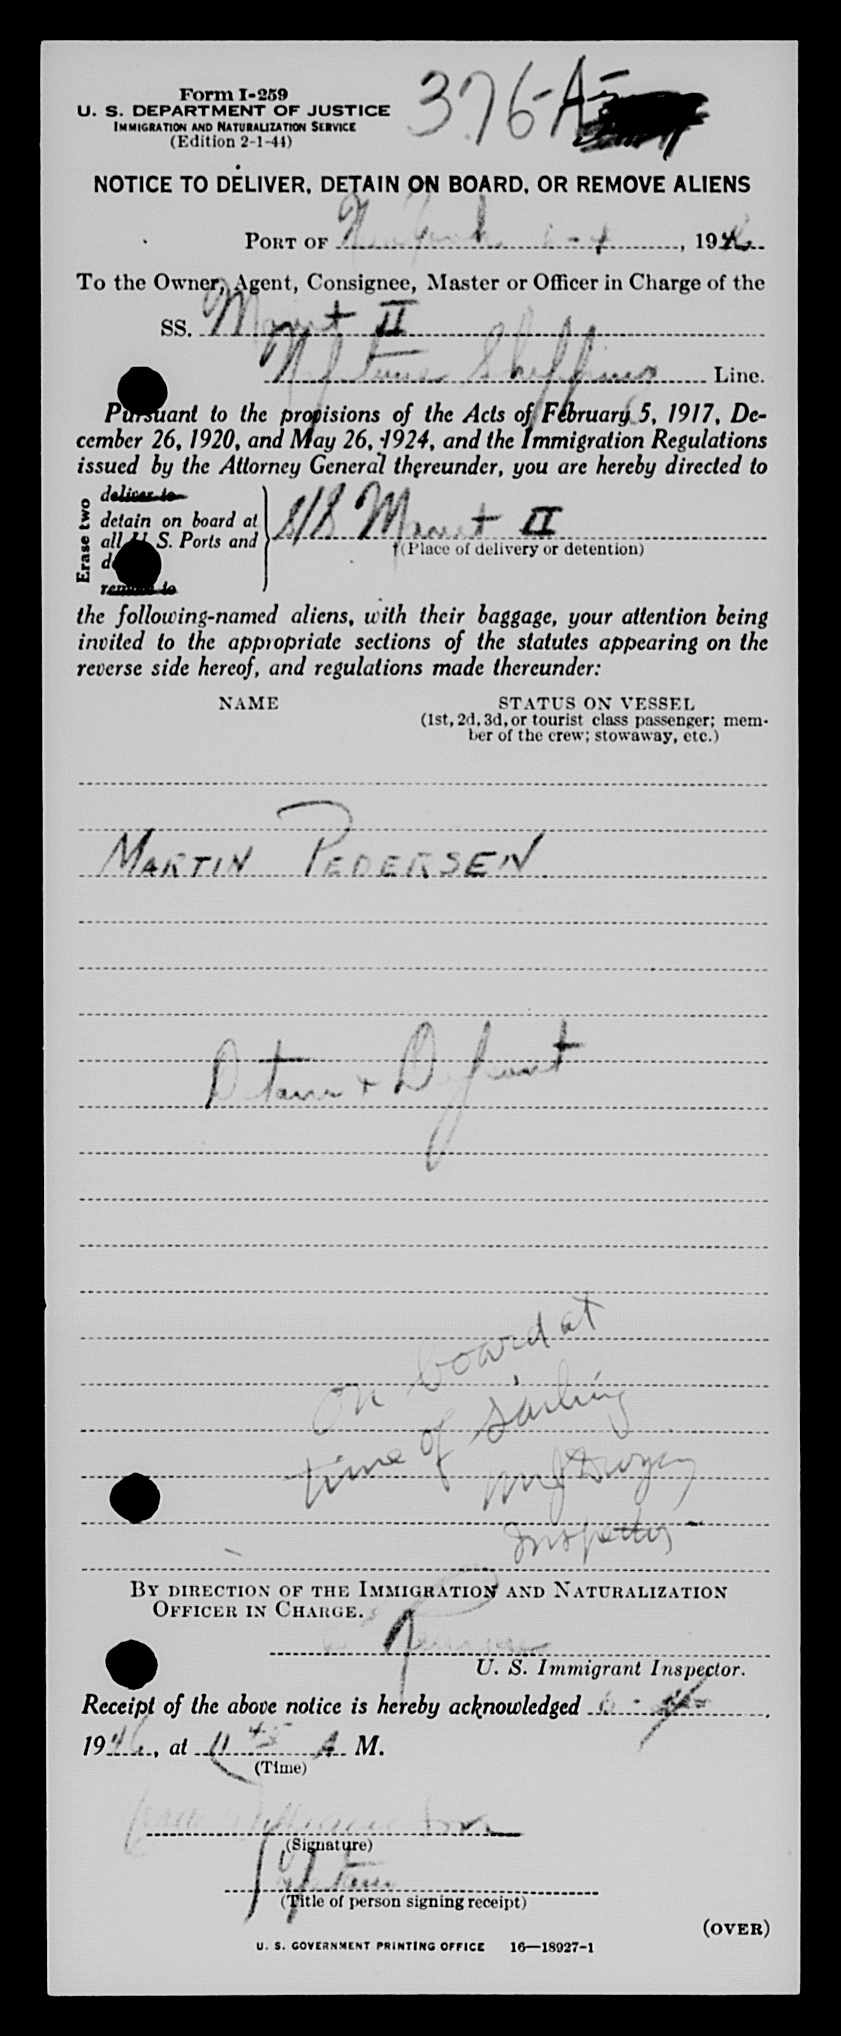 Form I-259
376-A
U. S. DEPARTMENT OF JUSTICE
IMMIGRATION AND NATURALIZATION SERVICE
(Edition 2-1-44)
NOTICE TO DELIVER, DETAIN ON BOARD, OR REMOVE ALIENS
PORT OF New York 6-4, 1946
To the Owner, Agent, Consignee, Master or Officer in Charge of the
SS. II
Neptune Shipping Line.
Pursuant to the provisions of the Acts of February 5, 1917, De-
cember 26, 1920, and May 26, 1924, and the Immigration Regulations
issued by the Attorney General thereunder, you are hereby directed to
Erase two
deliver to
detain on board at S/S II
all U. S. Ports and
(Place of delivery or detention)
remove to
the following-named aliens, with their baggage, your attention being
invited to the appropriate sections of the statutes appearing on the
reverse side hereof, and regulations made thereunder:
NAME STATUS ON VESSEL
(1st, 2d, 3d, or tourist class passenger; mem-
ber of the crew; stowaway, etc.)
MARTIN PEDERSEN
Detain + Deport
on board at
time of sailing
Inspector
BY DIRECTION OF THE IMMIGRATION AND NATURALIZATION
OFFICER IN CHARGE.
U. S. Immigrant Inspector.
Receipt of the above notice is hereby acknowledged 6-4,
1946, at 11 45 A M.
(Time)
(Signature)
(Title of person signing receipt)
(OVER)
U. S. GOVERNMENT PRINTING OFFICE 16—18927-1